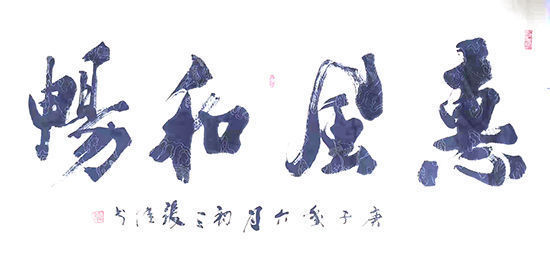 惠風和暢
庚子歲六月初三張书